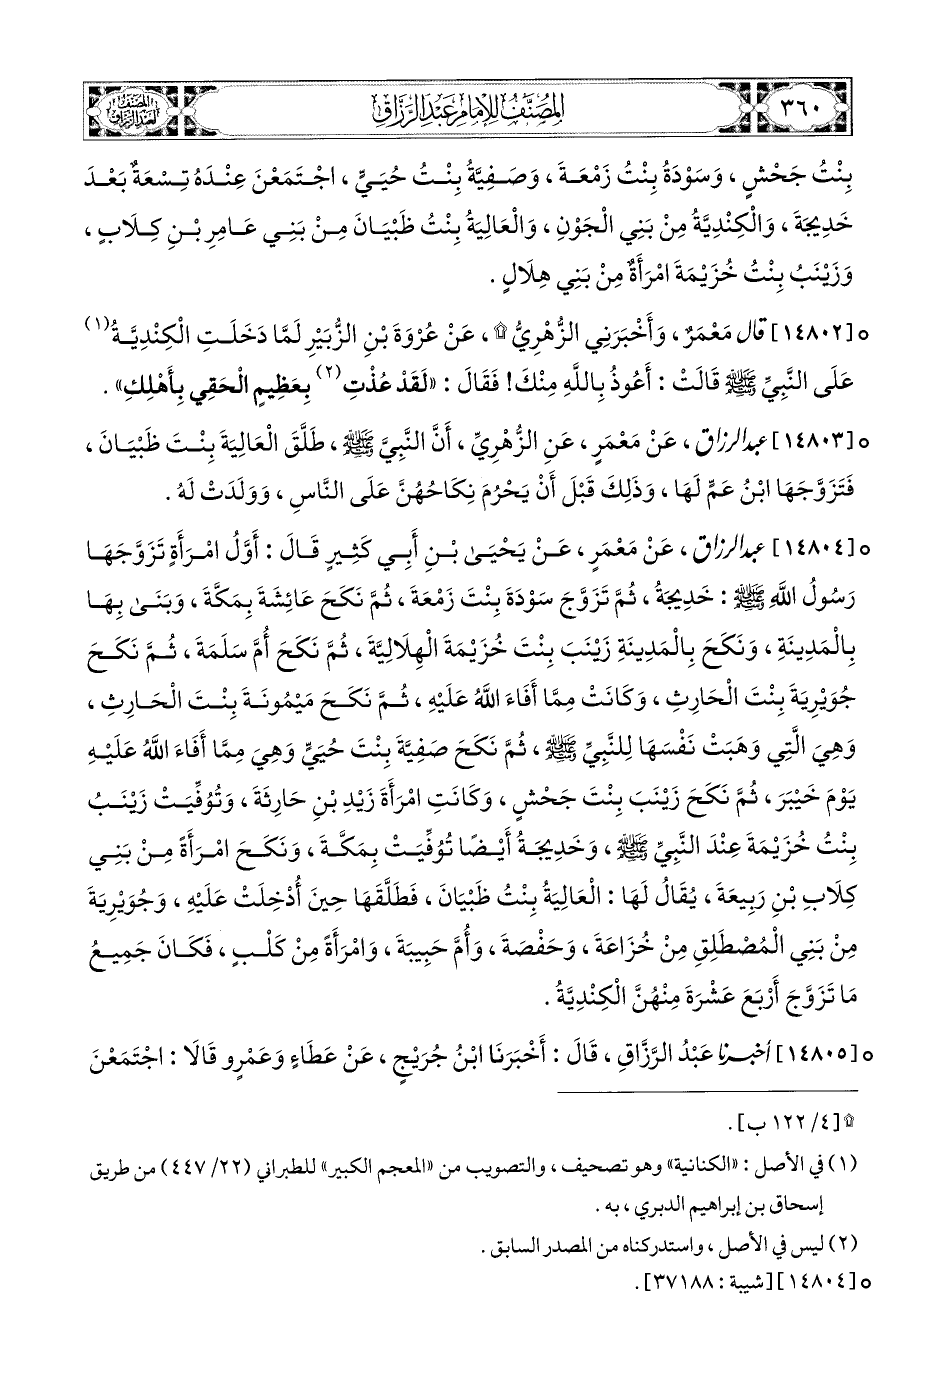 ٣٦٠
المصنف للإمام عبد الرزاق
المصنف
لعبد الرزاق
بِنْتُ جَحْشٍ ، وَسَوْدَةُ بِنْتُ زَمْعَةَ ، وَصَفِيَّةُ بِنْتُ حُيَيٍّ ، اجْتَمَعْنَ عِنْدَهُ تِسْعَةٌ بَعْدَ
خَدِيجَةَ ، وَالْكِنْدِيَّةُ مِنْ بَنِي الْجَوْنِ ، وَالْعَالِيَةُ بِنْتُ ظَبْيَانَ مِنْ بَنِي عَامِرِ بْنِ كِلَابٍ ،
وَزَيْنَبُ بِنْتُ خُزَيْمَةَ امْرَأَةٌ مِنْ بَنِي هِلَالٍ .
○ [١٤٨٠٢] قال مَعْمَرٌ ، وَأَخْبَرَنِي الزُّهْرِيُّ ۩ ، عَنْ عُرْوَةَ بْنِ الزُّبَيْرِ لَمَّا دَخَلَتِ الْكِنْدِيَّةُ (١)
عَلَى النَّبِيِّ ﷺ قَالَتْ : أَعُوذُ بِاللَّهِ مِنْكَ! فَقَالَ : «لَقَدْ عُذْتِ (٢) بِعَظِيمٍ الْحَقِي بِأَهْلِكِ» .
○ [١٤٨٠٣] عبد الرزاق ، عَنْ مَعْمَرٍ ، عَنِ الزُّهْرِيِّ ، أَنَّ النَّبِيَّ ﷺ ، طَلَّقَ الْعَالِيَةَ بِنْتَ ظَبْيَانَ ،
فَتَزَوَّجَهَا ابْنُ عَمٍّ لَهَا ، وَذَلِكَ قَبْلَ أَنْ يَحْرُمَ نِكَاحُهُنَّ عَلَى النَّاسِ ، وَوَلَدَتْ لَهُ .
○ [١٤٨٠٤] عبد الرزاق ، عَنْ مَعْمَرٍ ، عَنْ يَحْيَىٰ بْنِ أَبِي كَثِيرٍ قَالَ : أَوَّلُ امْرَأَةٍ تَزَوَّجَهَا
رَسُولُ اللَّهِ ﷺ : خَدِيجَةُ ، ثُمَّ تَزَوَّجَ سَوْدَةَ بِنْتَ زَمْعَةَ ، ثُمَّ نَكَحَ عَائِشَةَ بِمَكَّةَ ، وَبَنَىٰ بِهَا
بِالْمَدِينَةِ ، وَنَكَحَ بِالْمَدِينَةِ زَيْنَبَ بِنْتَ خُزَيْمَةَ الْهِلَالِيَّةَ ، ثُمَّ نَكَحَ أُمَّ سَلَمَةَ ، ثُمَّ نَكَحَ
جُوَيْرِيَةَ بِنْتَ الْحَارِثِ ، وَكَانَتْ مِمَّا أَفَاءَ اللَّهُ عَلَيْهِ ، ثُمَّ نَكَحَ مَيْمُونَةَ بِنْتَ الْحَارِثِ ،
وَهِيَ الَّتِي وَهَبَتْ نَفْسَهَا لِلنَّبِيِّ ﷺ ، ثُمَّ نَكَحَ صَفِيَّةَ بِنْتَ حُيَيٍّ وَهِيَ مِمَّا أَفَاءَ اللَّهُ عَلَيْهِ
يَوْمَ خَيْبَرَ ، ثُمَّ نَكَحَ زَيْنَبَ بِنْتَ جَحْشٍ ، وَكَانَتِ امْرَأَةَ زَيْدِ بْنِ حَارِثَةَ ، وَتُوُفِّيَتْ زَيْنَبُ
بِنْتُ خُزَيْمَةَ عِنْدَ النَّبِيِّ ﷺ ، وَخَدِيجَةُ أَيْضًا تُوُفِّيَتْ بِمَكَّةَ ، وَنَكَحَ امْرَأَةً مِنْ بَنِي
كِلَابِ بْنِ رَبِيعَةَ ، يُقَالُ لَهَا : الْعَالِيَةُ بِنْتُ ظَبْيَانَ ، فَطَلَّقَهَا حِينَ أُدْخِلَتْ عَلَيْهِ ، وَجُوَيْرِيَةَ
مِنْ بَنِي الْمُصْطَلِقِ مِنْ خُزَاعَةَ ، وَحَفْصَةَ ، وَأُمَّ حَبِيبَةَ ، وَامْرَأَةً مِنْ كَلْبٍ ، فَكَانَ جَمِيعُ
مَا تَزَوَّجَ أَرْبَعَ عَشْرَةَ مِنْهُنَّ الْكِنْدِيَّةُ .
○ [١٤٨٠٥] أخبرنا عَبْدُ الرَّزَّاقِ ، قَالَ : أَخْبَرَنَا ابْنُ جُرَيْجٍ ، عَنْ عَطَاءٍ وَعَمْرٍو قَالَا : اجْتَمَعْنَ
۩ [٤/ ١٢٢ ب] .
(١) في الأصل : «الكنانية» وهو تصحيف ، والتصويب من «المعجم الكبير» للطبراني (٢٢/ ٤٤٧) من طريق
إسحاق بن إبراهيم الدبري ، به .
(٢) ليس في الأصل ، واستدركناه من المصدر السابق .
○ [١٤٨٠٤] [شيبة : ٣٧١٨٨] .